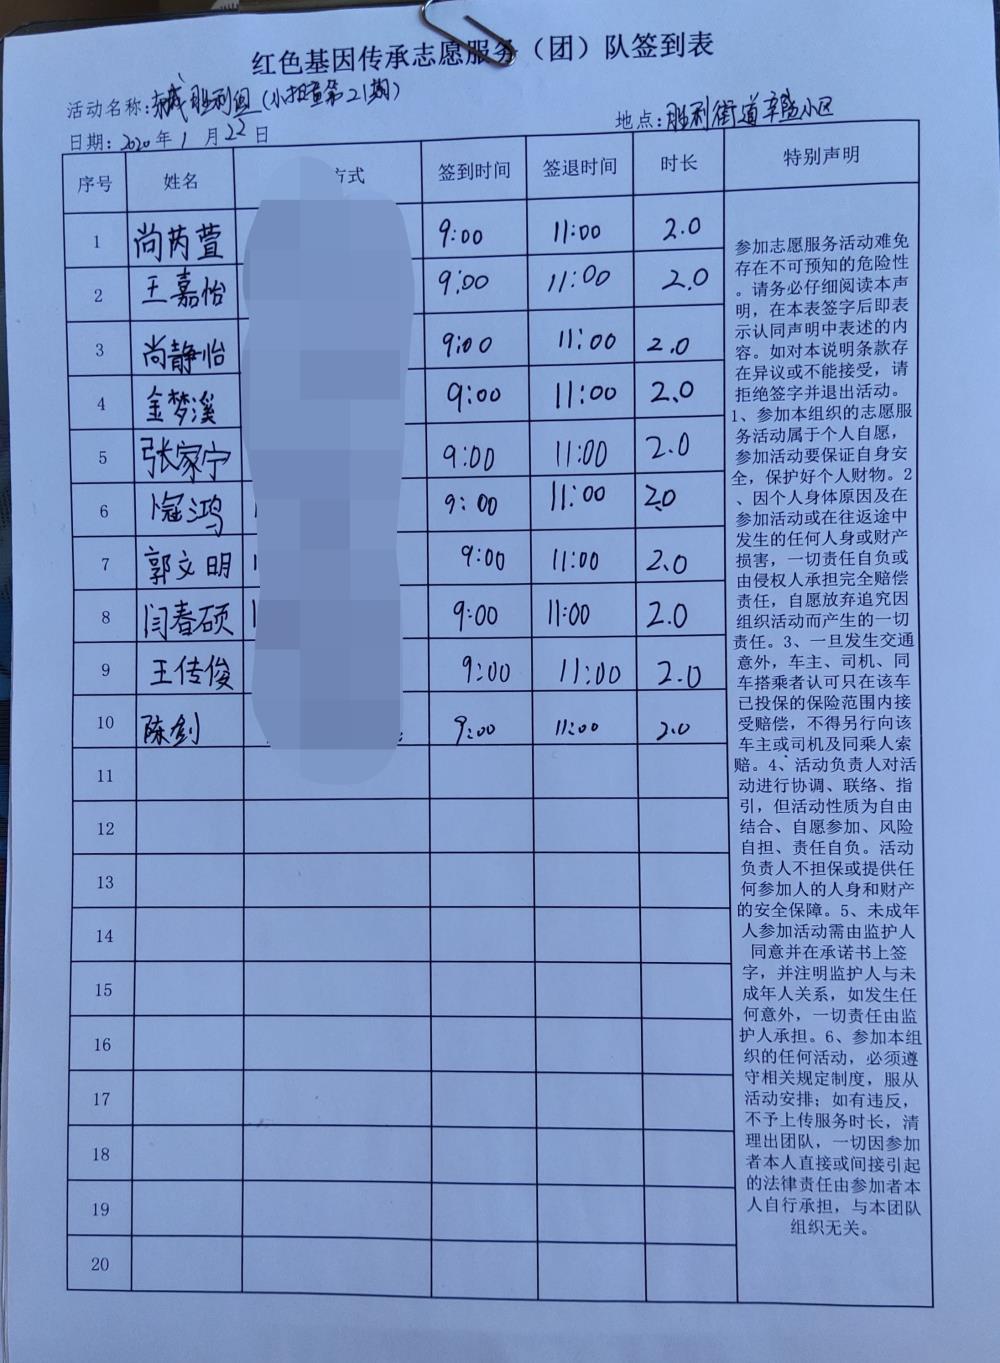 红色基因传承志愿服务（团）队签到表
活动名称：赤诚胜利组（小担童第21期）
地点：胜利街道辛盛小区
日期：2020年1月22日
序号 姓名 方式 签到时间 签退时间 时长 特别声明
1 尚芮萱 9:00 11:00 2.0
2 王嘉怡 9:00 11:00 2.0
3 尚静怡 9:00 11:00 2.0
4 金梦溪 9:00 11:00 2.0
5 张家宁 9:00 11:00 2.0
6 鸿 9:00 11:00 2.0
7 郭文明 9:00 11:00 2.0
8 闫春硕 9:00 11:00 2.0
9 王传俊 9:00 11:00 2.0
10 陈剑 9:00 11:00 2.0
11
12
13
14
15
16
17
18
19
20
参加志愿服务活动难免
存在不可预知的危险性
。请务必仔细阅读本声
明，在本表签字后即表
示认同声明中表述的内
容。如对本说明条款存
在异议或不能接受，请
拒绝签字并退出活动。
1、参加本组织的志愿服
务活动属于个人自愿，
参加活动要保证自身安
全，保护好个人财物。2
、因个人身体原因及在
参加活动或在往返途中
发生的任何人身或财产
损害，一切责任自负或
由侵权人承担完全赔偿
责任，自愿放弃追究因
组织活动而产生的一切
责任。3、一旦发生交通
意外，车主、司机、同
车搭乘者认可只在该车
已投保的保险范围内接
受赔偿，不得另行向该
车主或司机及同乘人索
赔。4、活动负责人对活
动进行协调、联络、指
引，但活动性质为自由
结合、自愿参加、风险
自担、责任自负。活动
负责人不担保或提供任
何参加人的人身和财产
的安全保障。5、未成年
人参加活动需由监护人
同意并在承诺书上签
字，并注明监护人与未
成年人关系，如发生任
何意外，一切责任由监
护人承担。6、参加本组
织的任何活动，必须遵
守相关规定制度，服从
活动安排；如有违反，
不予上传服务时长，清
理出团队，一切因参加
者本人直接或间接引起
的法律责任由参加者本
人自行承担，与本团队
组织无关。